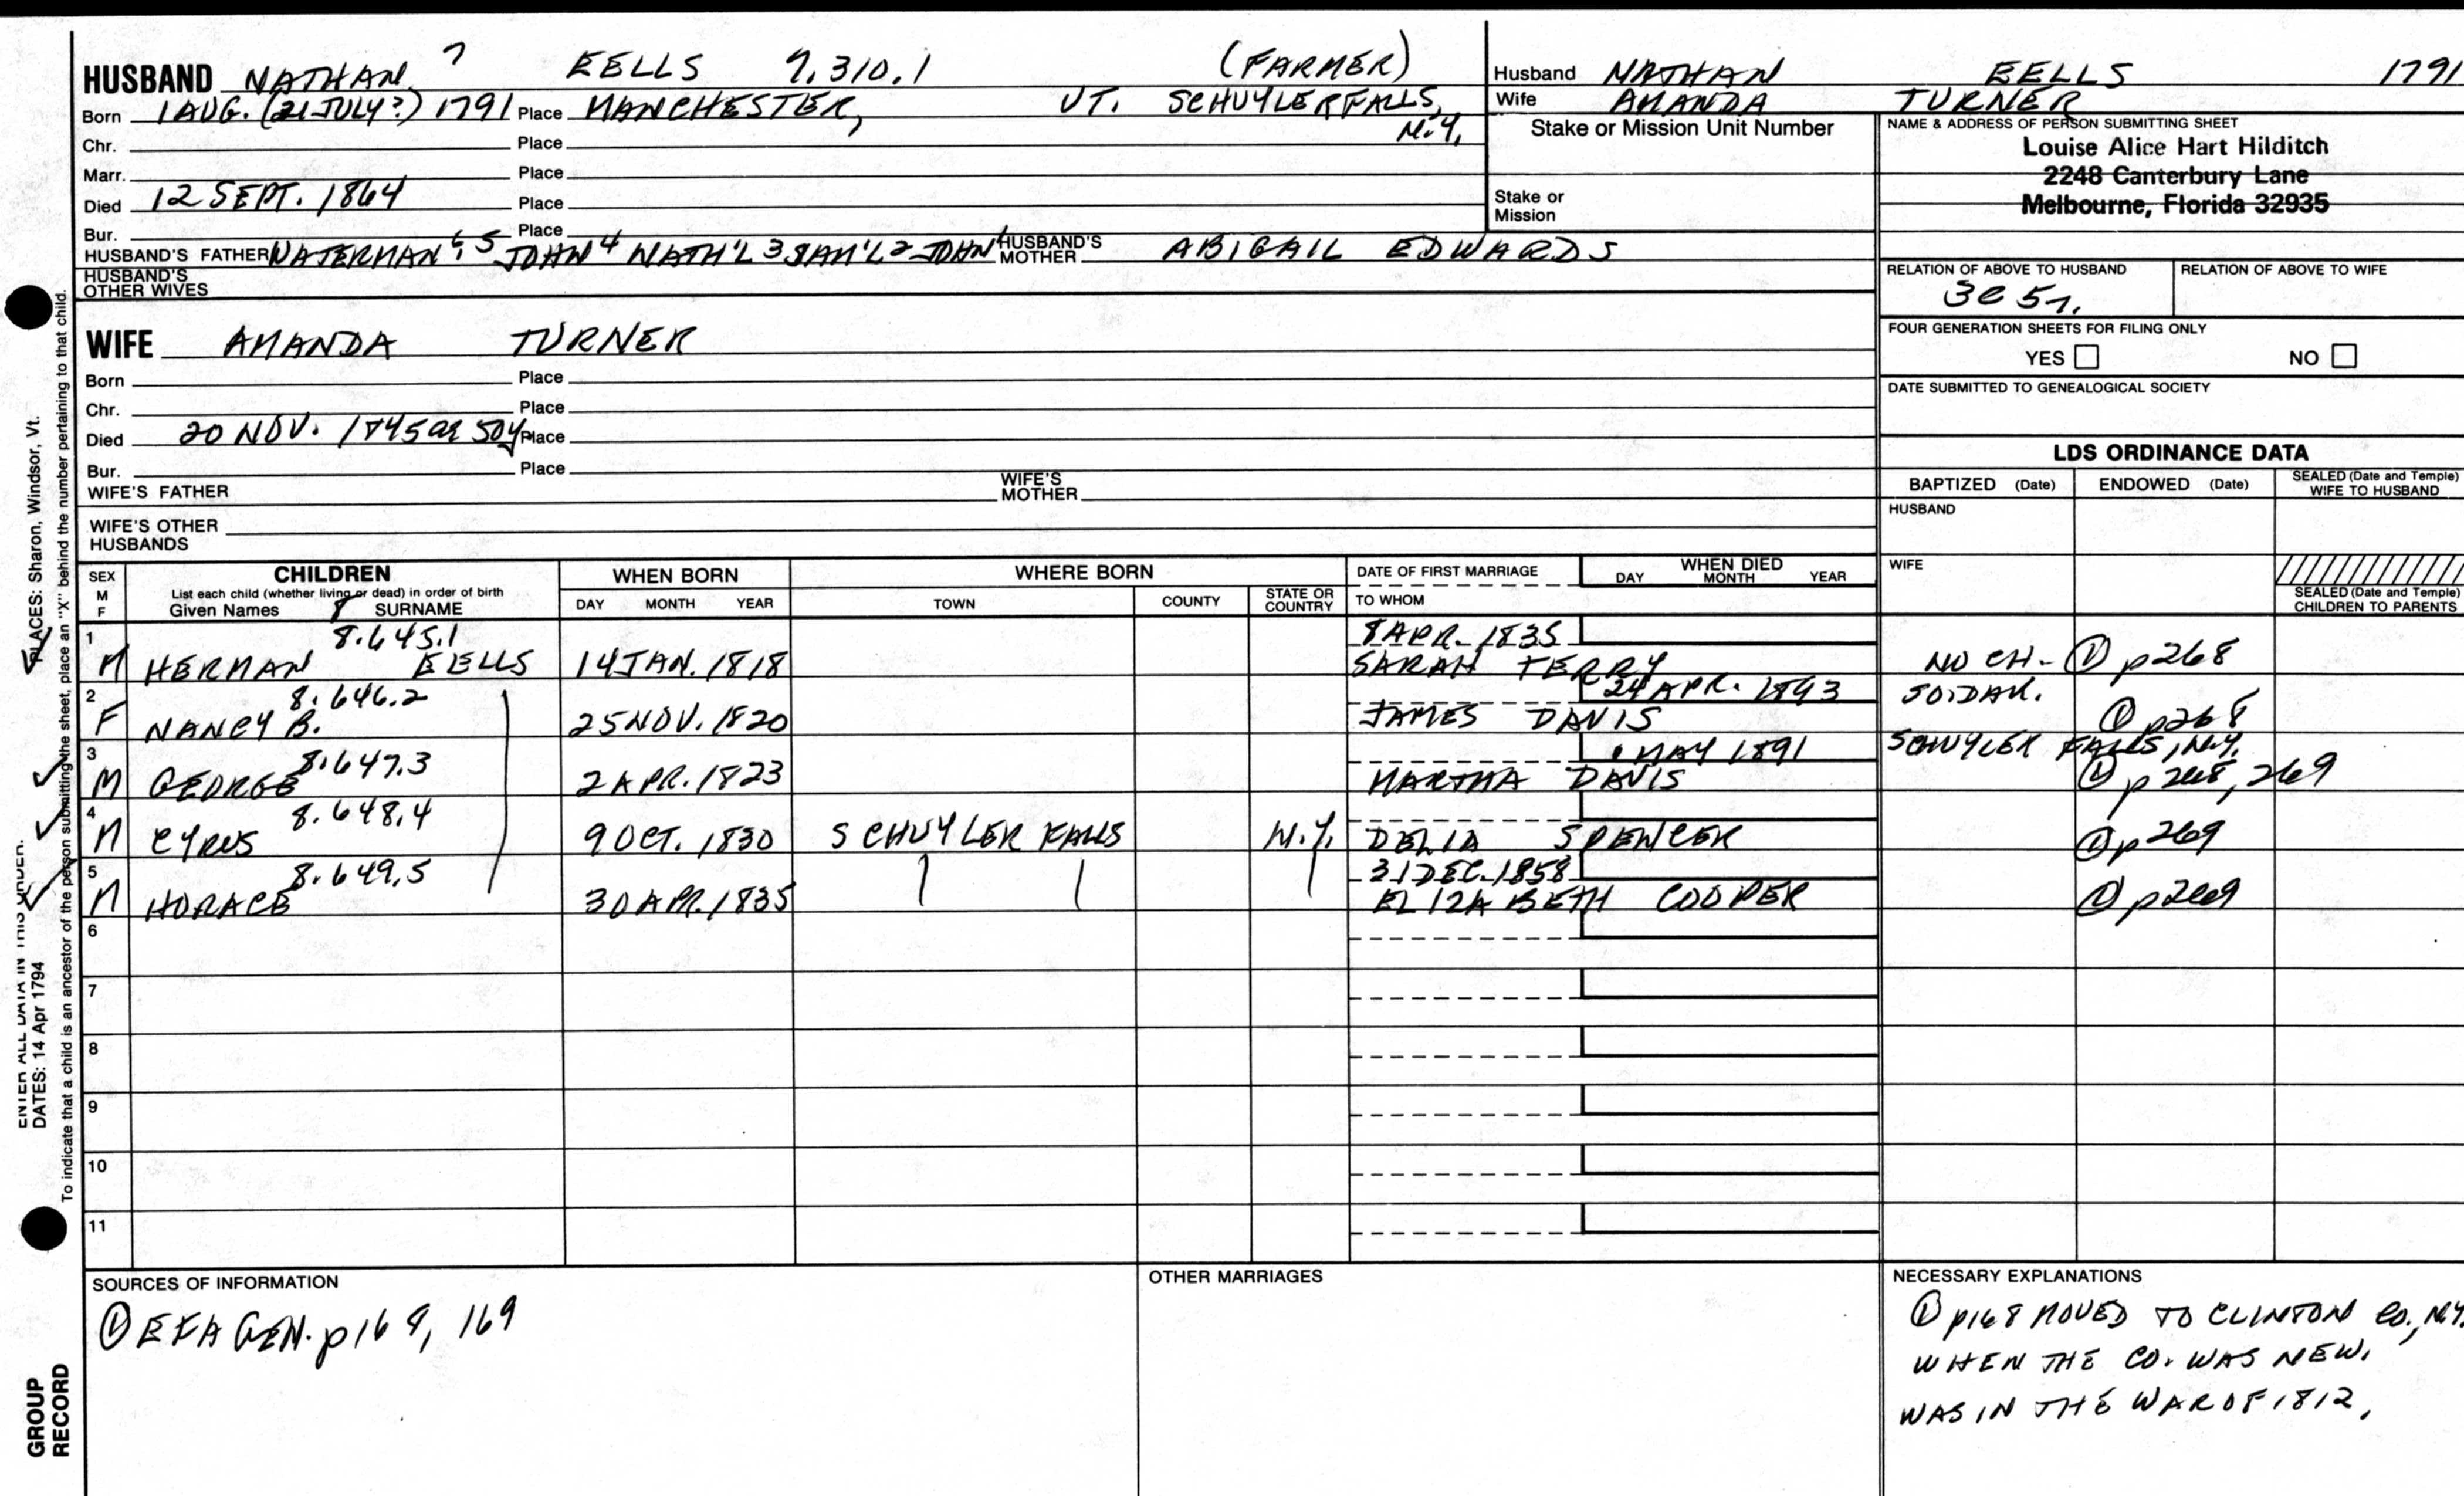 HUSBAND NATHAN 7 EELLS 7.310.1 (FARMER)
Born 1 AUG. (21 JULY?) 1791 Place MANCHESTER, VT. SCHUYLERFALLS, N.Y.
Chr. Place
Marr. Place
Died 12 SEPT. 1864 Place
Bur. Place
HUSBAND'S FATHER WATERMAN 6, 5 JOHN 4 NATH'L 3 SAM'L 2 JOHN 1 HUSBAND'S MOTHER ABIGAIL EDWARDS
HUSBAND'S OTHER WIVES
Husband NATHAN EELLS 1791
Wife AMANDA TURNER
Stake or Mission Unit Number
Stake or Mission
NAME & ADDRESS OF PERSON SUBMITTING SHEET
Louise Alice Hart Hilditch
2248 Canterbury Lane
Melbourne, Florida 32935
RELATION OF ABOVE TO HUSBAND RELATION OF ABOVE TO WIFE
3C 5r.
FOUR GENERATION SHEETS FOR FILING ONLY
YES NO
DATE SUBMITTED TO GENEALOGICAL SOCIETY
WIFE AMANDA TURNER
Born Place
Chr. Place
Died 20 NOV. 1845 ae 50y Place
Bur. Place
WIFE'S FATHER WIFE'S MOTHER
WIFE'S OTHER HUSBANDS
LDS ORDINANCE DATA
BAPTIZED (Date) ENDOWED (Date) SEALED (Date and Temple) WIFE TO HUSBAND
HUSBAND
WIFE
SEALED (Date and Temple) CHILDREN TO PARENTS
SEX M F
CHILDREN
List each child (whether living or dead) in order of birth
Given Names 8 SURNAME
WHEN BORN
DAY MONTH YEAR
WHERE BORN
TOWN COUNTY STATE OR COUNTRY
DATE OF FIRST MARRIAGE
TO WHOM
WHEN DIED
DAY MONTH YEAR
1 8.645.1 8 APR. 1835
M HERMAN EELLS 14 JAN. 1818 SARAH TERRY NO CH. ① p268
2 8.646.2 24 APR. 1893 SO. DAK.
F NANCY B. 25 NOV. 1820 JAMES DAVIS ① p268
3 8.647.3 MAY 1891 SCHUYLER FALLS, N.Y.
M GEORGE 2 APR. 1823 MARTHA DAVIS ① p 268, 269
4 8.648.4
M CYRUS 9 OCT. 1830 SCHUYLER FALLS N.Y. DELIA SPENCER ① p269
5 8.649.5 31 DEC. 1858
M HORACE 30 APR. 1835 ELIZABETH COOPER ① p269
6
7
8
9
10
11
SOURCES OF INFORMATION
① EFA GEN. p168, 169
OTHER MARRIAGES
NECESSARY EXPLANATIONS
① p168 MOVED TO CLINTON CO., N.Y.
WHEN THE CO. WAS NEW.
WAS IN THE WAR OF 1812.
PLACES: Sharon, Windsor, Vt.
ENTER ALL DATA IN THIS ORDER:
DATES: 14 Apr 1794
To indicate that a child is an ancestor of the person submitting the sheet, place an "X" behind the number pertaining to that child.
GROUP
RECORD